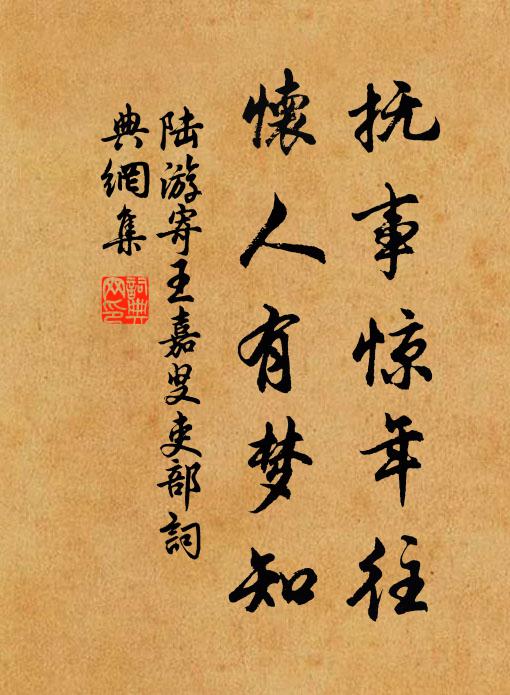 抚事惊年往
懷人有梦知
陆游寄王嘉叟吏部詞
典網集
詞典
网印